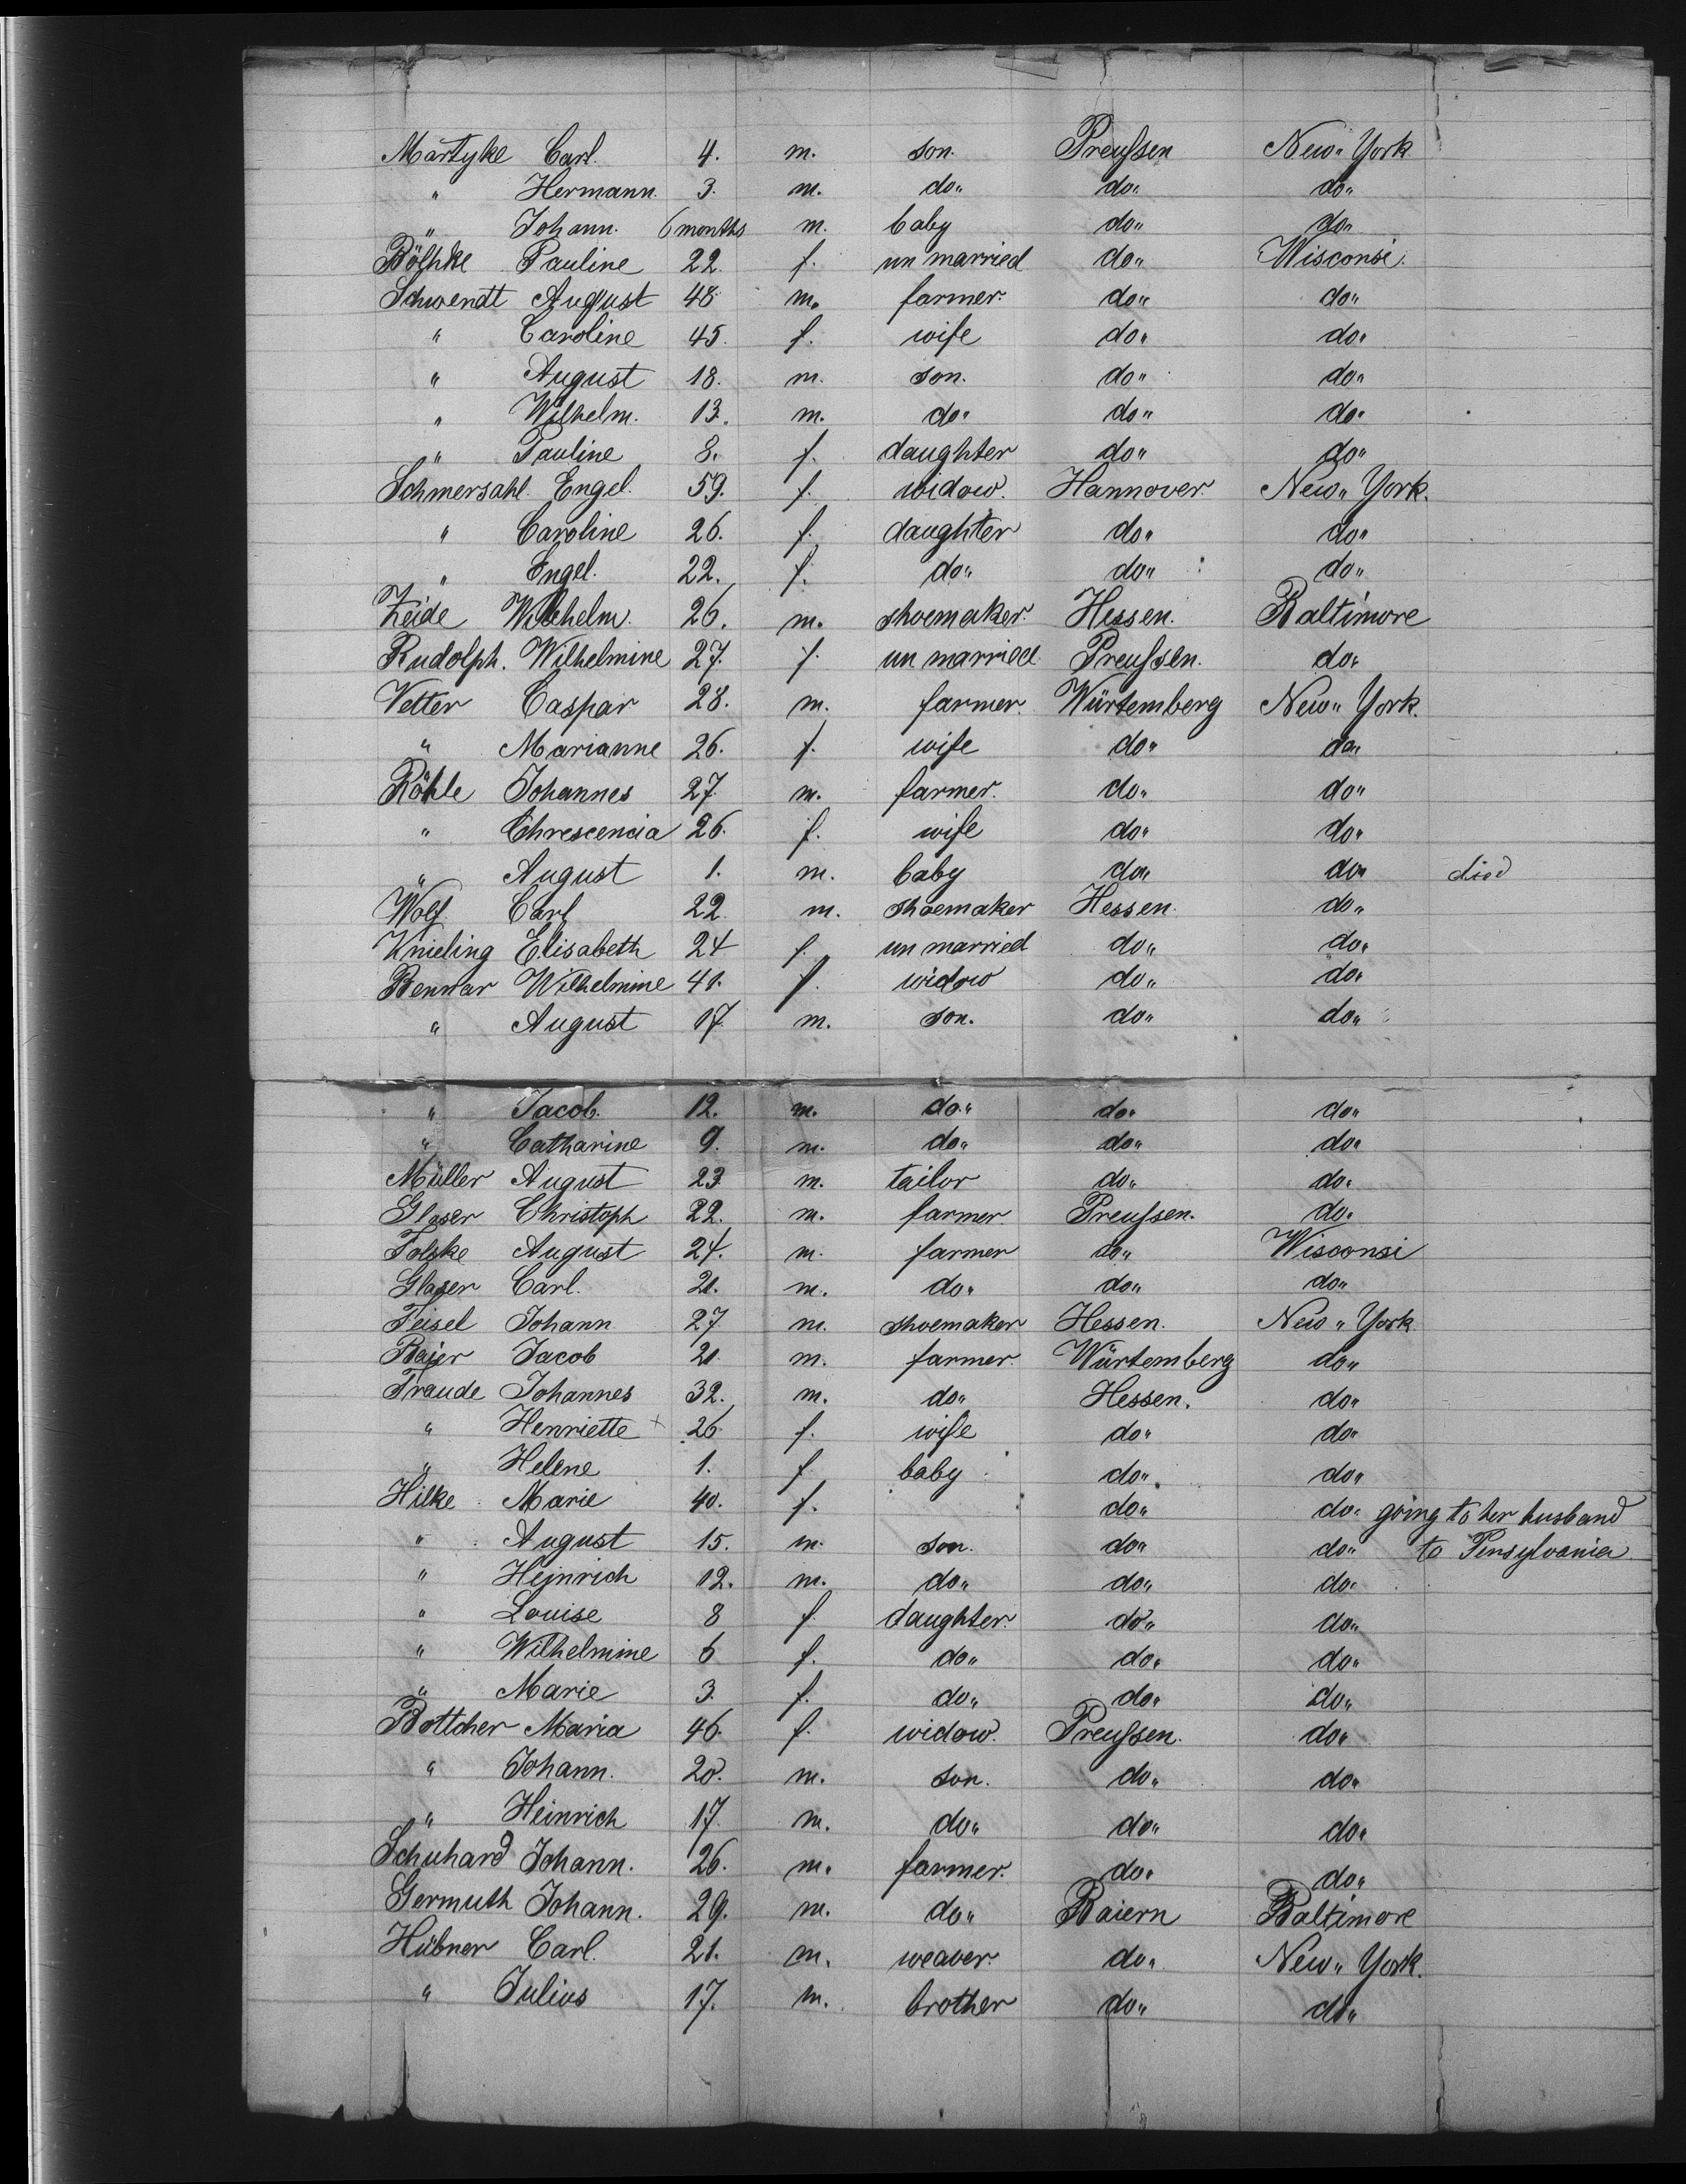 Martyke Carl. 4. m. son. Preußen New" York
" Hermann. 3. m. do" do" do"
" Johann. 6 months m. baby do" do"
Böthke Pauline 22. f. un married do" Wisconsi.
Schwendt August 48 m. farmer. do" do"
" Caroline 45. f. wife do" do"
" August 18. m. son. do" do"
" Wilhelm. 13. m. do" do" do"
" Pauline 8. f. daughter do" do"
Schmersahl. Engel. 59. f. widow. Hannover. New" York.
" Caroline 26. f. daughter do" do"
" Engel. 22. f. do" do" do"
Zeide Wilhelm. 26. m. shoemaker. Hessen. Baltimore
Rudolph. Wilhelmine 27. f. un married. Preußen. do"
Vetter Caspar 28. m. farmer. Würtemberg New" York.
" Marianne 26. f. wife do" do"
Röhle Johannes 27 m. farmer. do" do"
" Chrescencia 26. f. wife do" do"
" August 1. m. baby do" do" died
Wolf. Carl 22. m. shoemaker Hessen. do"
Knieling Elisabeth 24 f. un married do" do"
Bennar Wilhelmine 41. f. widow do" do"
" August 17. m. son. do" do"
" Jacob. 12. m. do" do" do"
" Catharine 9. m. do" do" do"
Müller August 23 m. tailor do" do"
Glaser Christoph 22. m. farmer. Preußen. do"
Folske August 24. m. farmer do" Wisconsi
Glaser Carl. 21. m. do" do" do"
Feisel Johann 27 m. shoemaker Hessen. New" York
Baier Jacob 21. m. farmer. Würtemberg do"
Traude Johannes 32. m. do" Hessen. do"
" Henriette + 26 f. wife do" do"
" Helene 1. f baby do" do"
Hilke Marie 40. f. do" do" going to her husband
" August 15. m. son. do" do" to Pensylvania
" Heinrich 12. m. do" do" do"
" Louise 8 f daughter. do" do"
" Wilhelmine 6 f. do" do" do"
" Marie 3. f. do" do" do"
Bottcher Maria 46. f. widow. Preußen. do"
" Johann. 20. m. son. do" do"
" Heinrich 17. m. do" do" do"
Schuhard Johann. 26. m. farmer. do" do"
Germuth Johann. 29. m. do" Baiern Baltimore
Hübner Carl. 21. m. weaver. do" New" York.
" Julius 17. m. brother do" do"